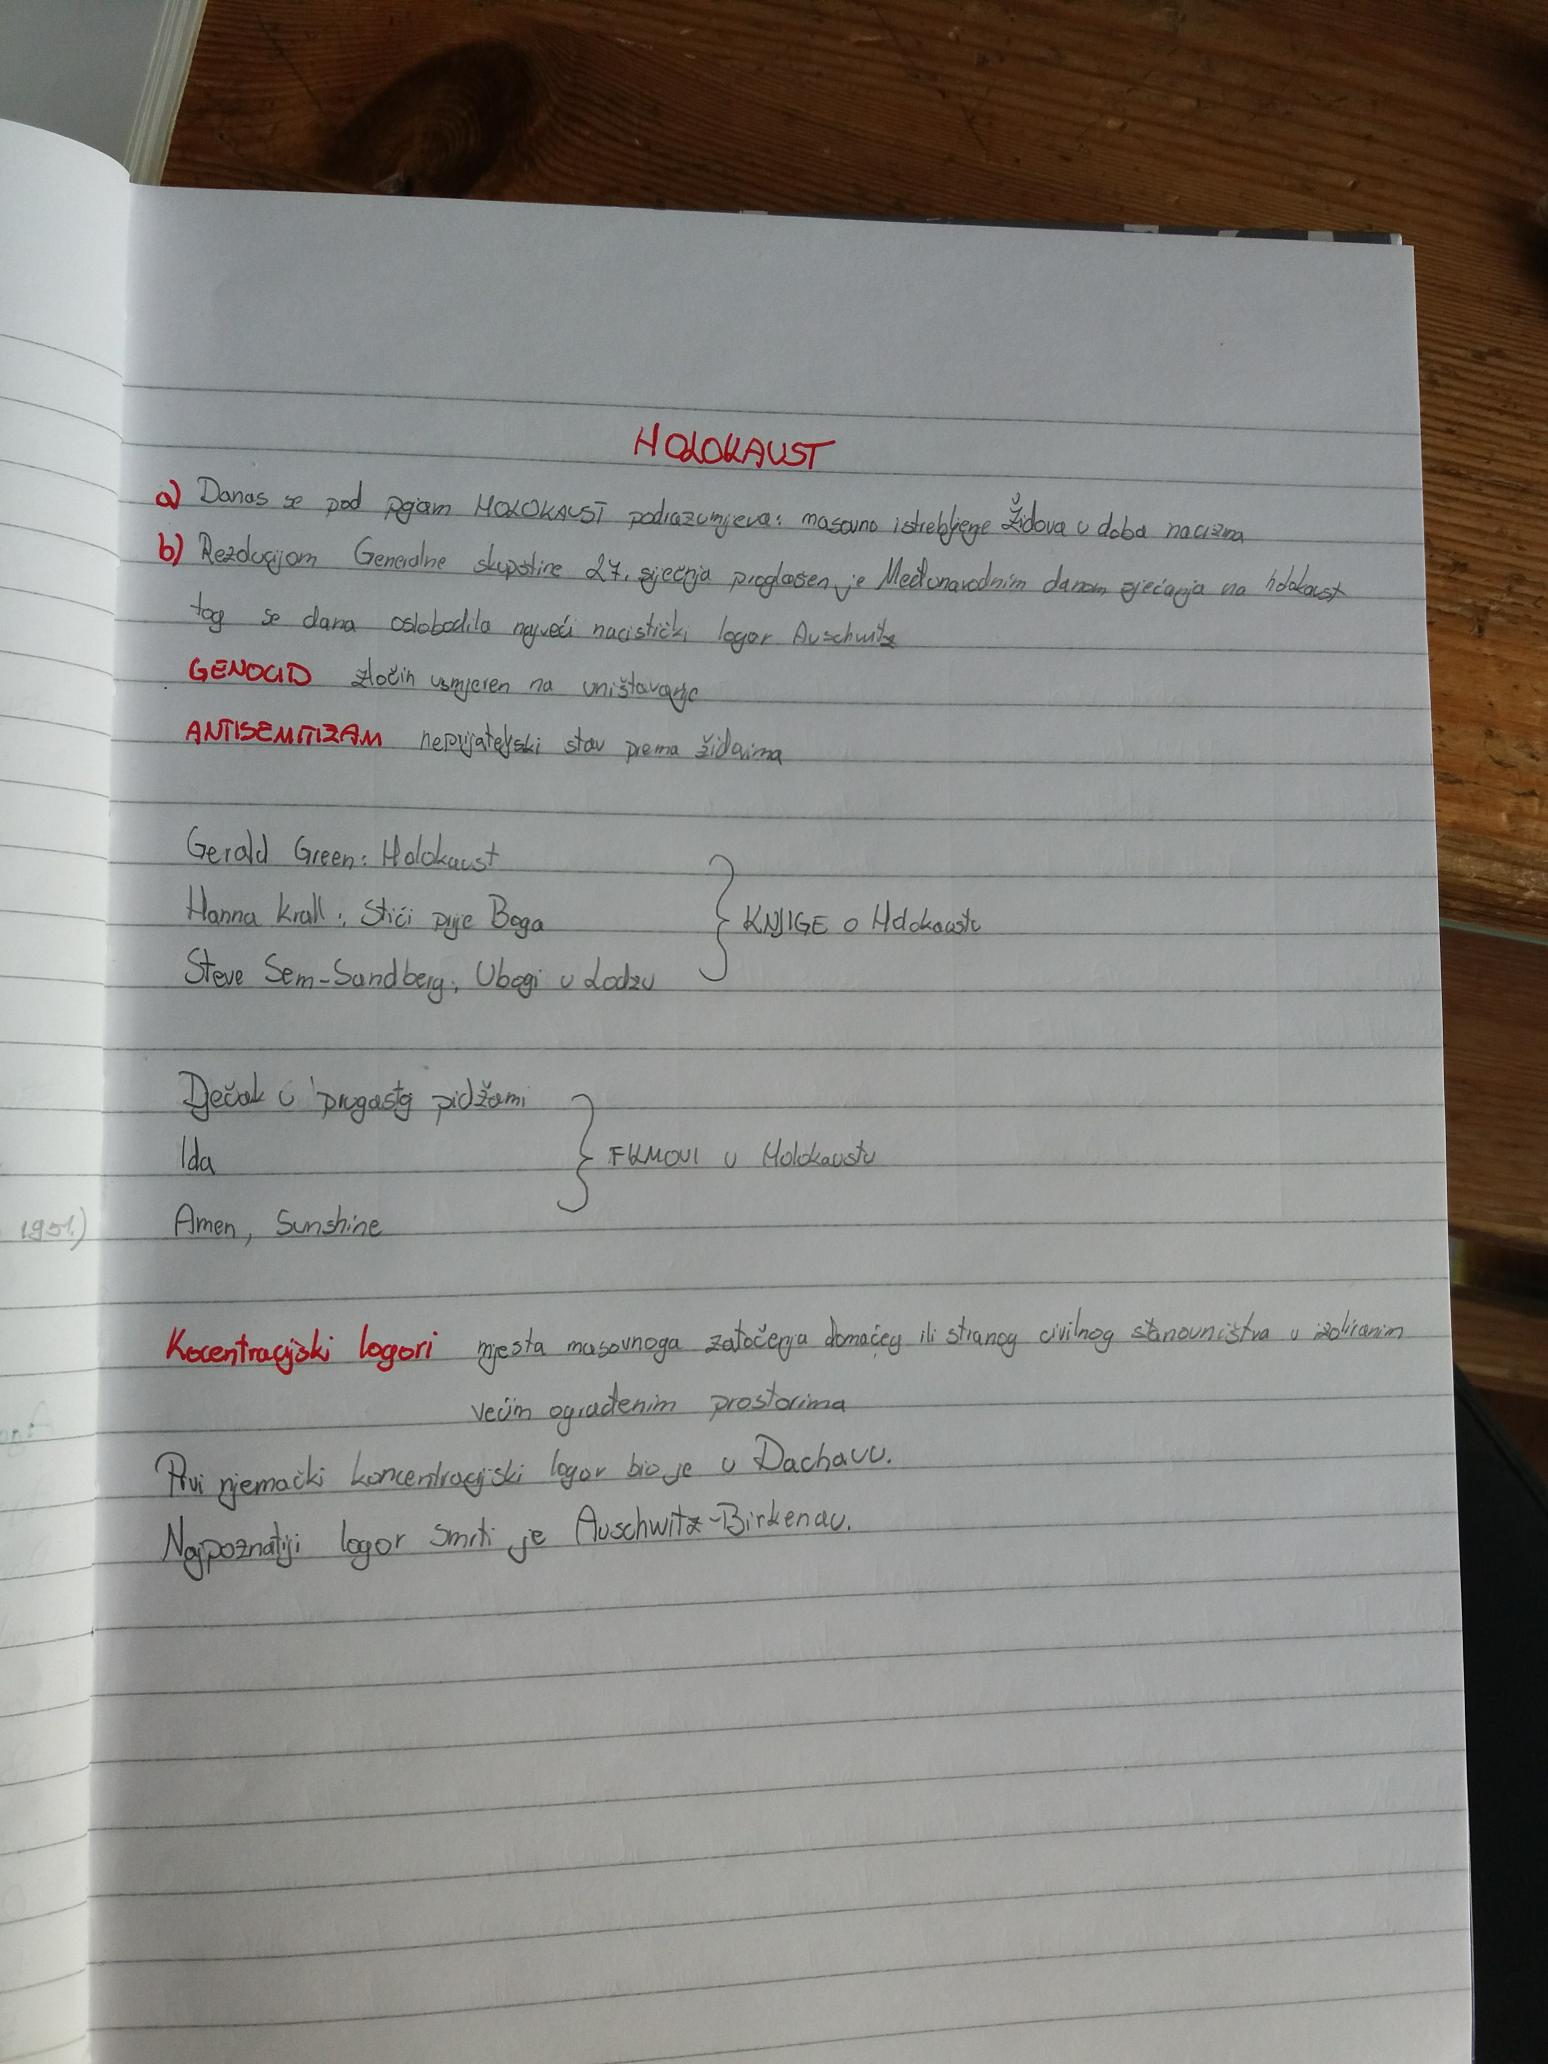 HOLOKAUST
a) Danas se pod pojam HOLOKAUST podrazumjeva: masovno istrebljenje Židova u doba nacizma
b) Rezolucijom Generalne skupštine 27. siječnja proglašen je Međunarodnim danom sjećanja na holokaust
tog se dana oslobodila najveći nacistički logor Auschwitz
GENOCID zločin usmjeren na uništavanje
ANTISEMITIZAM neprijateljski stav prema židovima
Gerald Green: Holokaust
Hanna Krall: Stići prije Boga
KNJIGE o Holokaustu
Steve Sem-Sandberg: Ubogi u Lodzu
Dječak u prugastoj pidžami
Ida
FILMOVI u Holokaustu
Amen, Sunshine
1951.)
Kocentracijski logori mjesta masovnoga zatočenja domaćeg ili stranog civilnog stanovništva u izoliranim
većim ograđenim prostorima
Prvi njemački koncentracijski logor bio je u Dachauu.
Najpoznatiji logor smrti je Auschwitz-Birkenau.